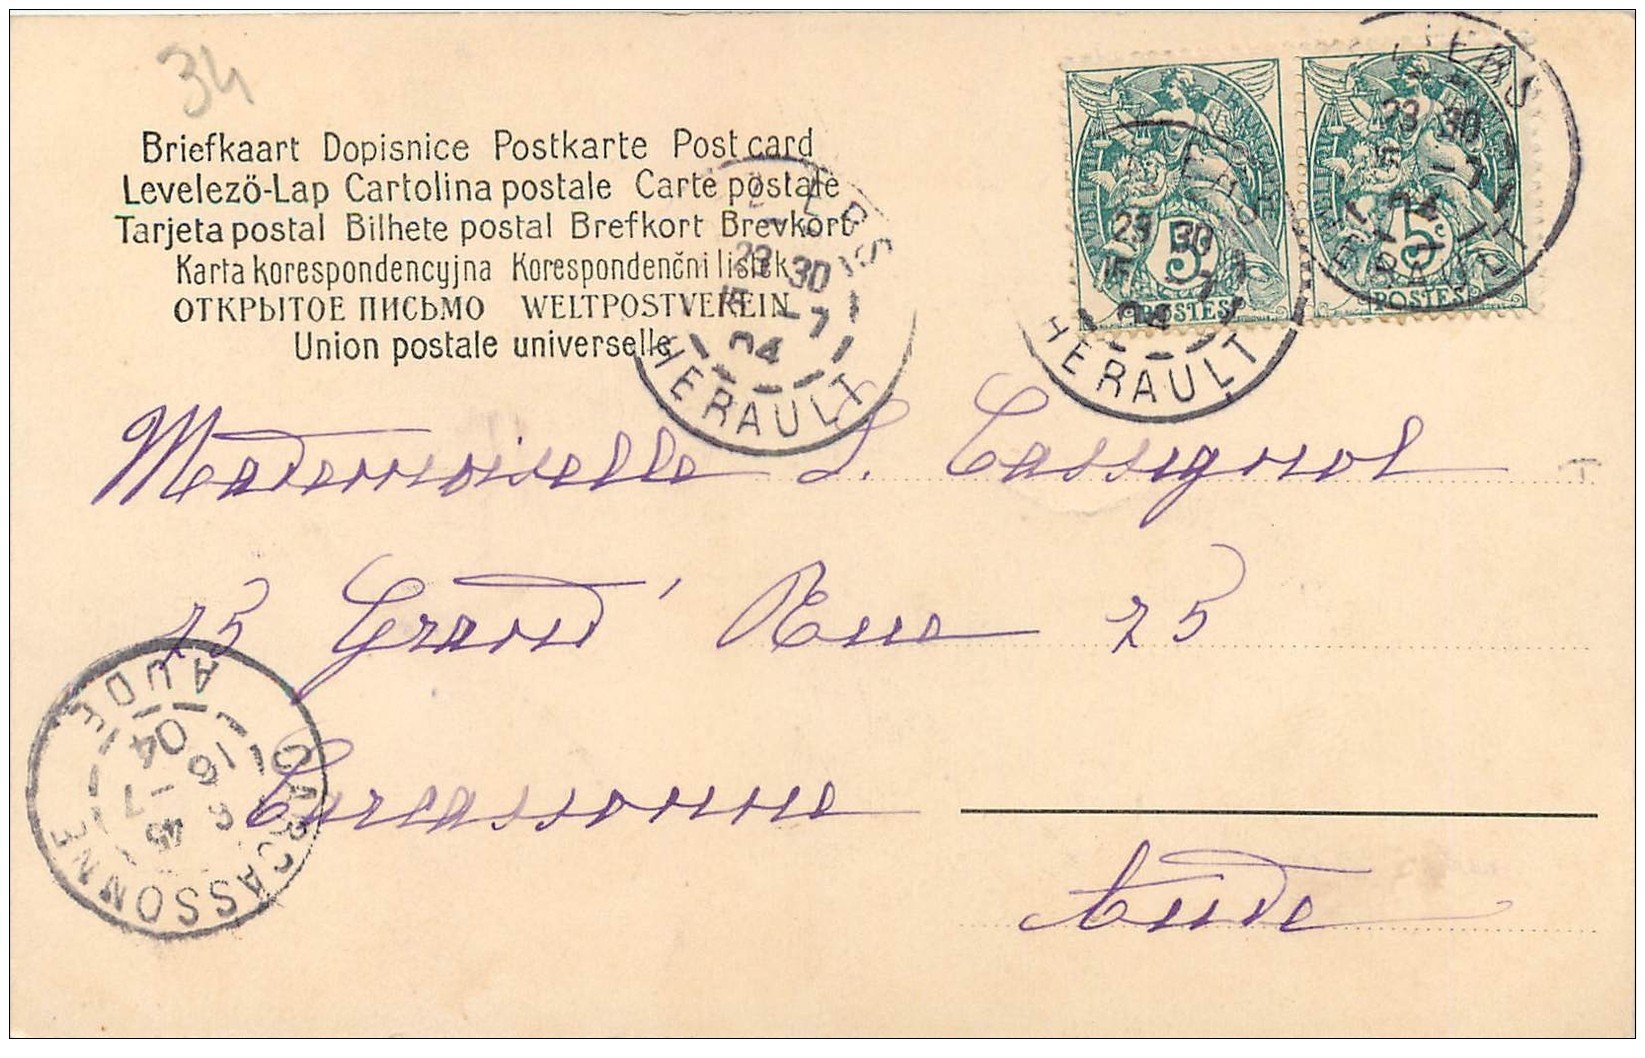 34
Briefkaart Dopisnice Postkarte Post card
Levelezö-Lap Cartolina postale Carte postale
Tarjeta postal Bilhete postal Brefkort Brevkort
Karta korespondencyjna Korespondenčni listek
ОТКРЫТОЕ ПИСЬМО WELTPOSTVEREIN
Union postale universelle
23 30
15 -7
04
HERAULT
23 30
15 -7
04
HERAULT
5
POSTES
23 30
15 -7
04
5c
POSTES
Mademoiselle L. Cassignol
T
75 Grand' Rue 75
Carcassonne
Aude
CARCASSONNE
AUDE
6 45
16 -7
04